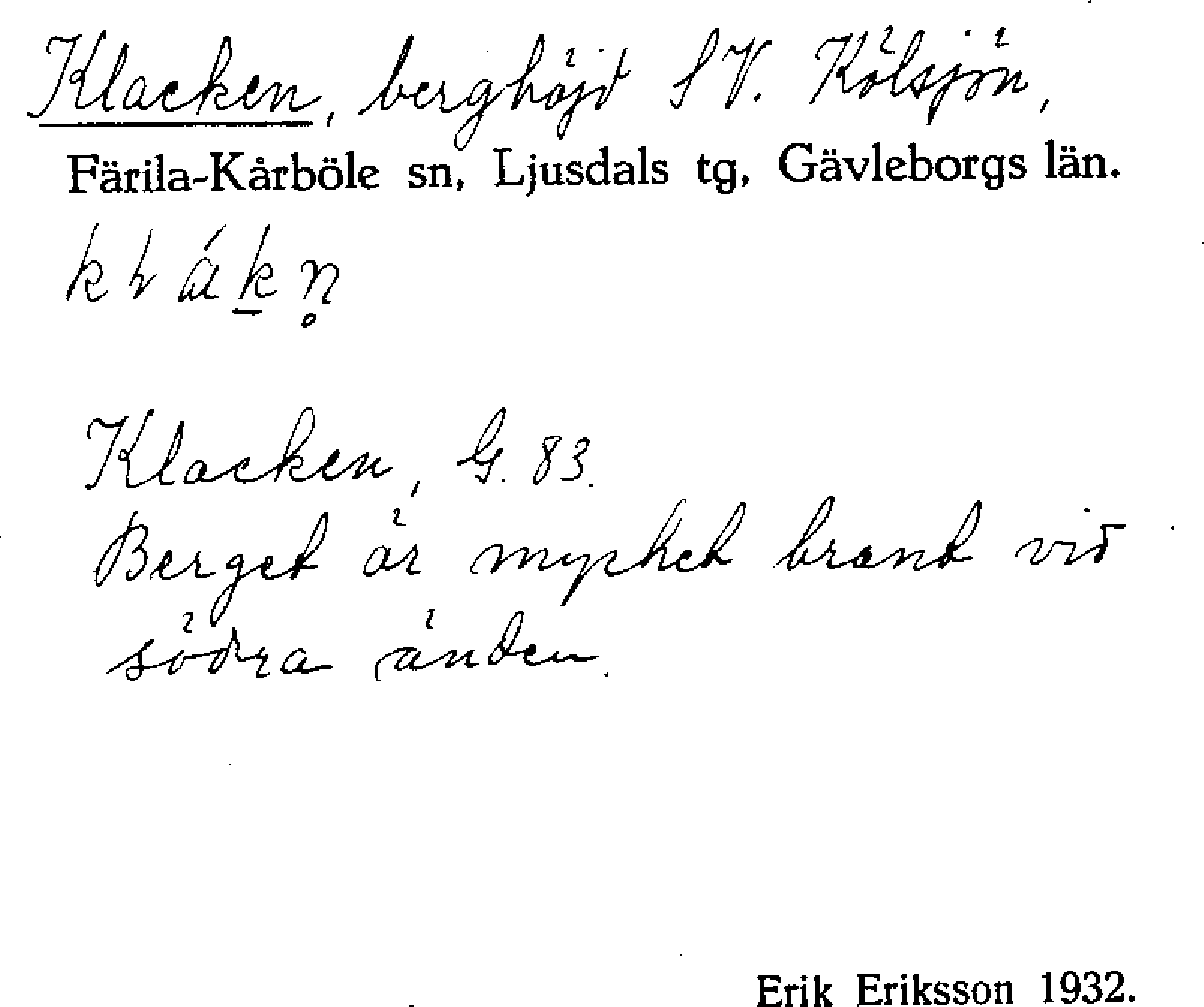 Klacken, berghöjd SV. Kölsjön,
Färila-Kårböle sn, Ljusdals tg, Gävleborgs län.
Klacken, G. 83.
Berget är mycket brant vid
södra änden.
Erik Eriksson 1932.